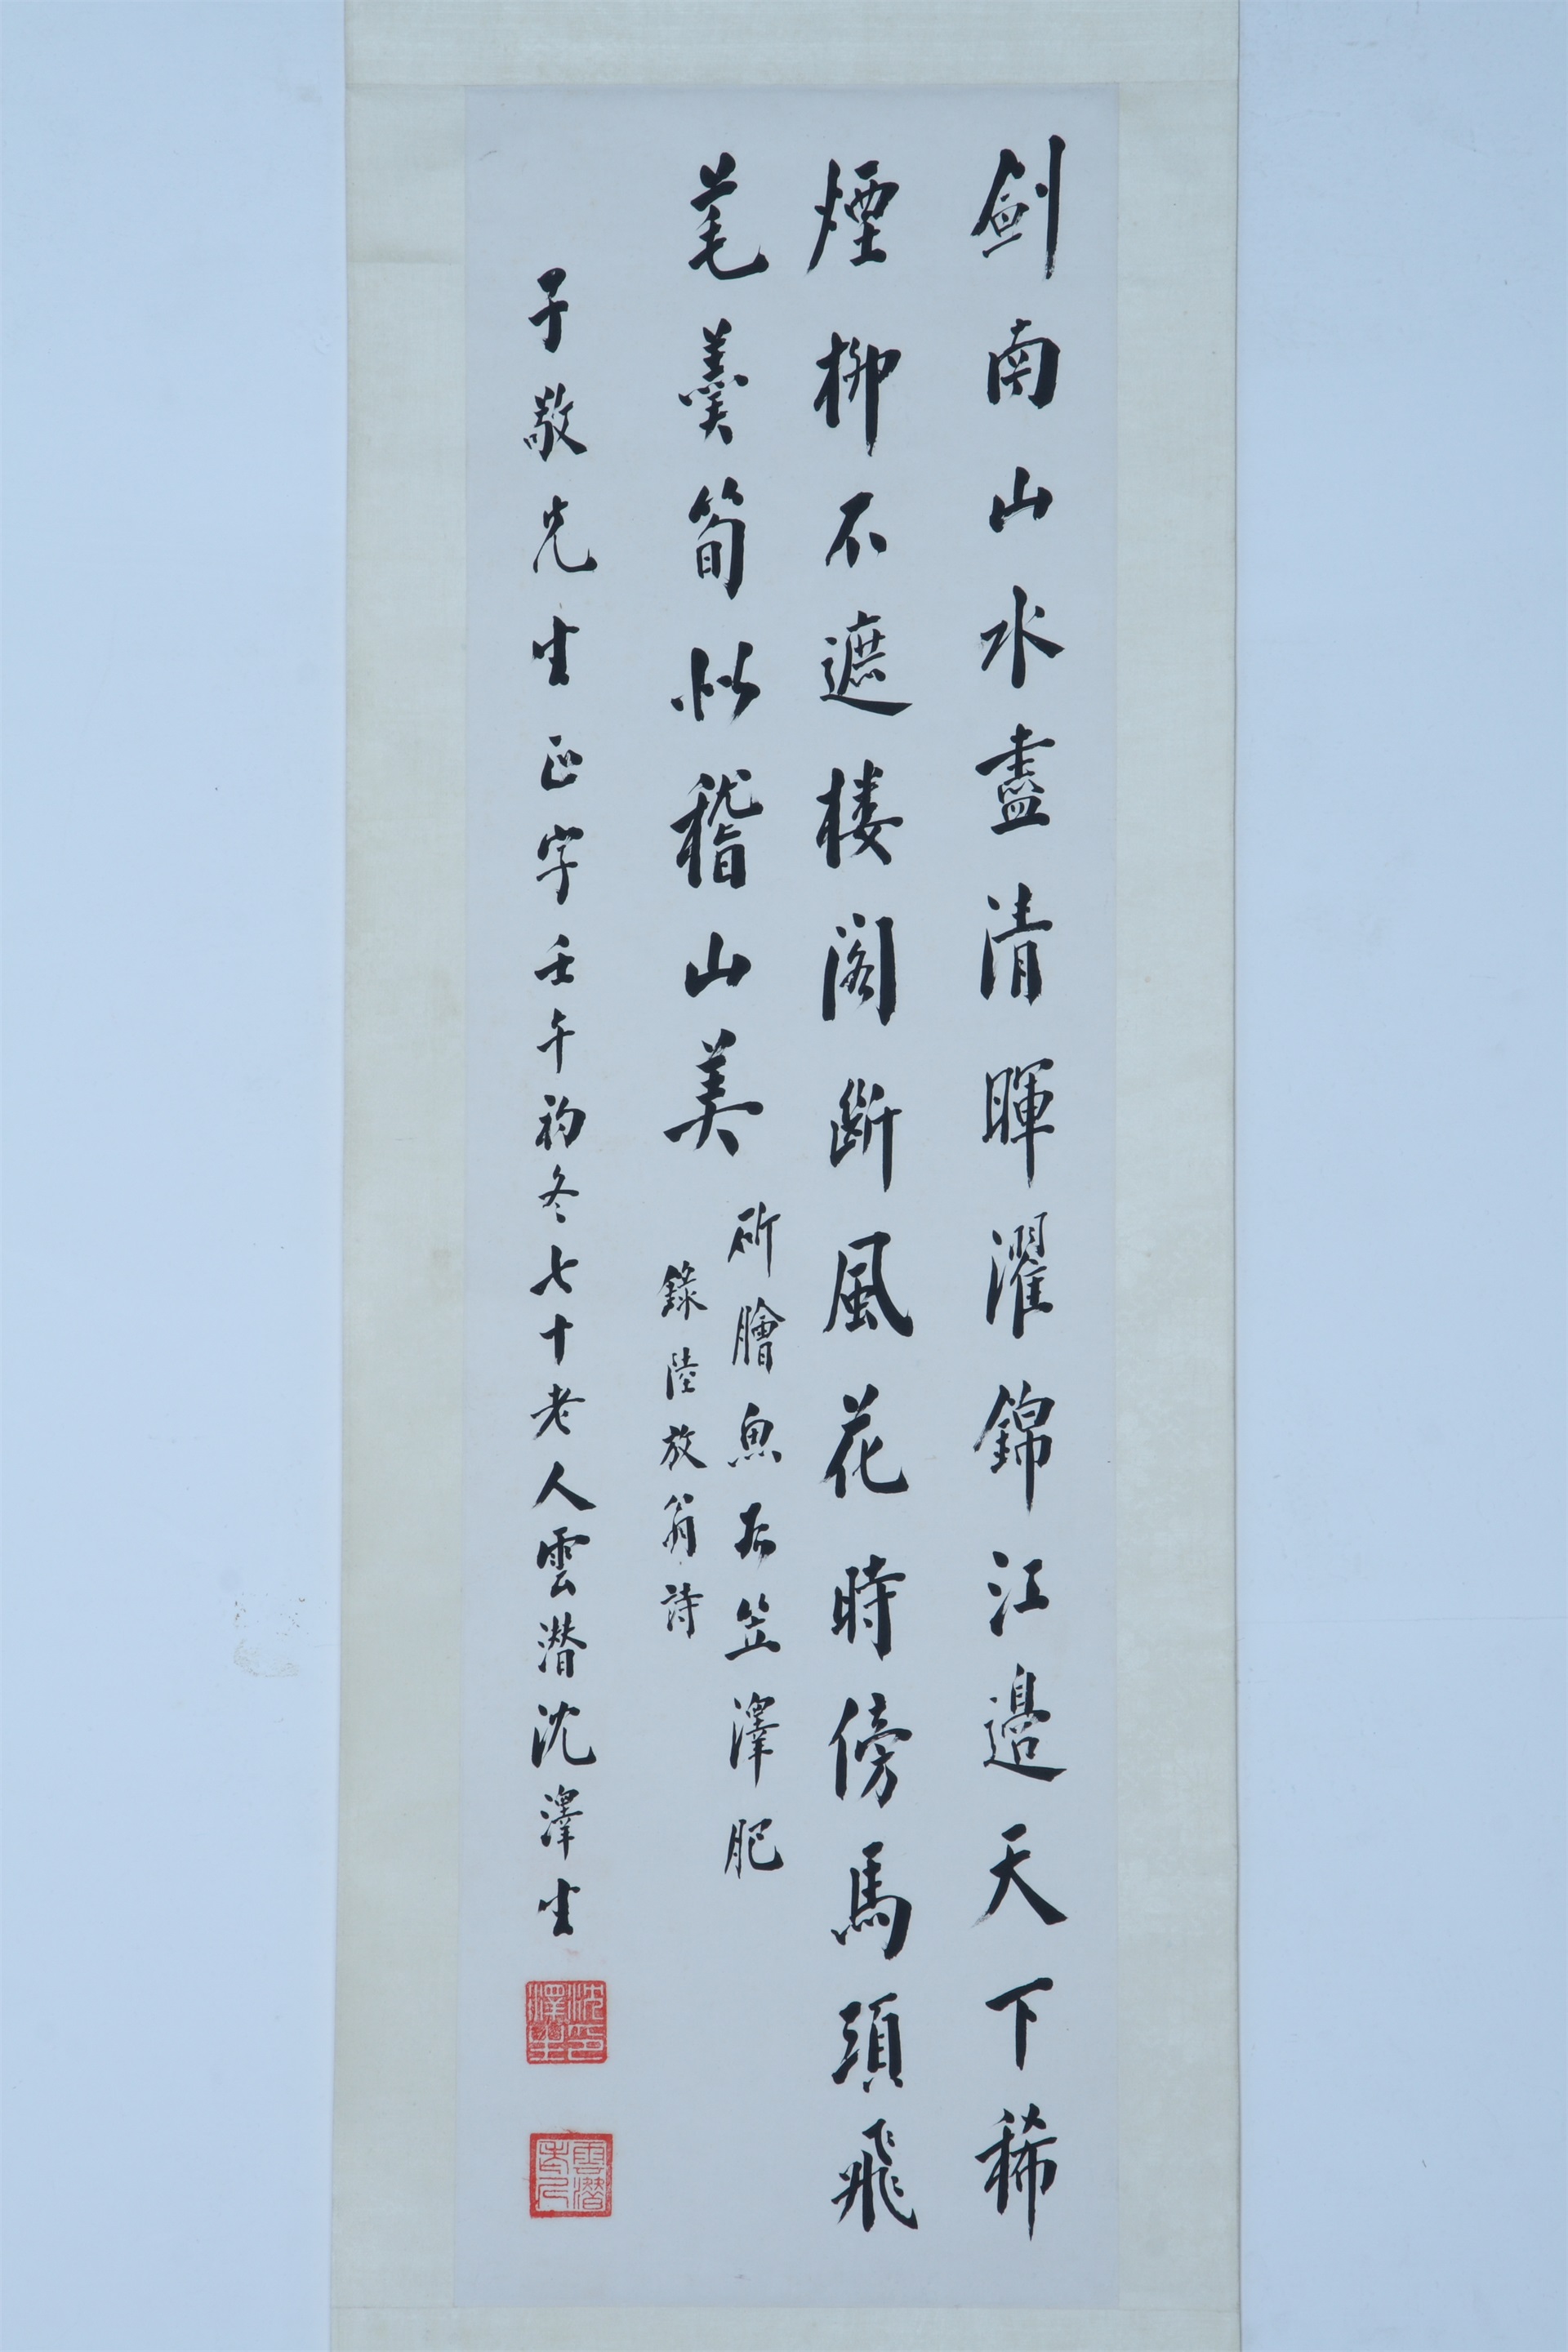 劍南山水盡清暉濯錦江邊天下稀
煙柳不遮樓閣斷風花時傍馬頭飛
芼羹筍似稽山美
斫膾魚如笠澤肥
錄陸放翁詩
子敬先生正字壬午初冬七十老人雲潛沈澤生
沈印澤生
雲潛